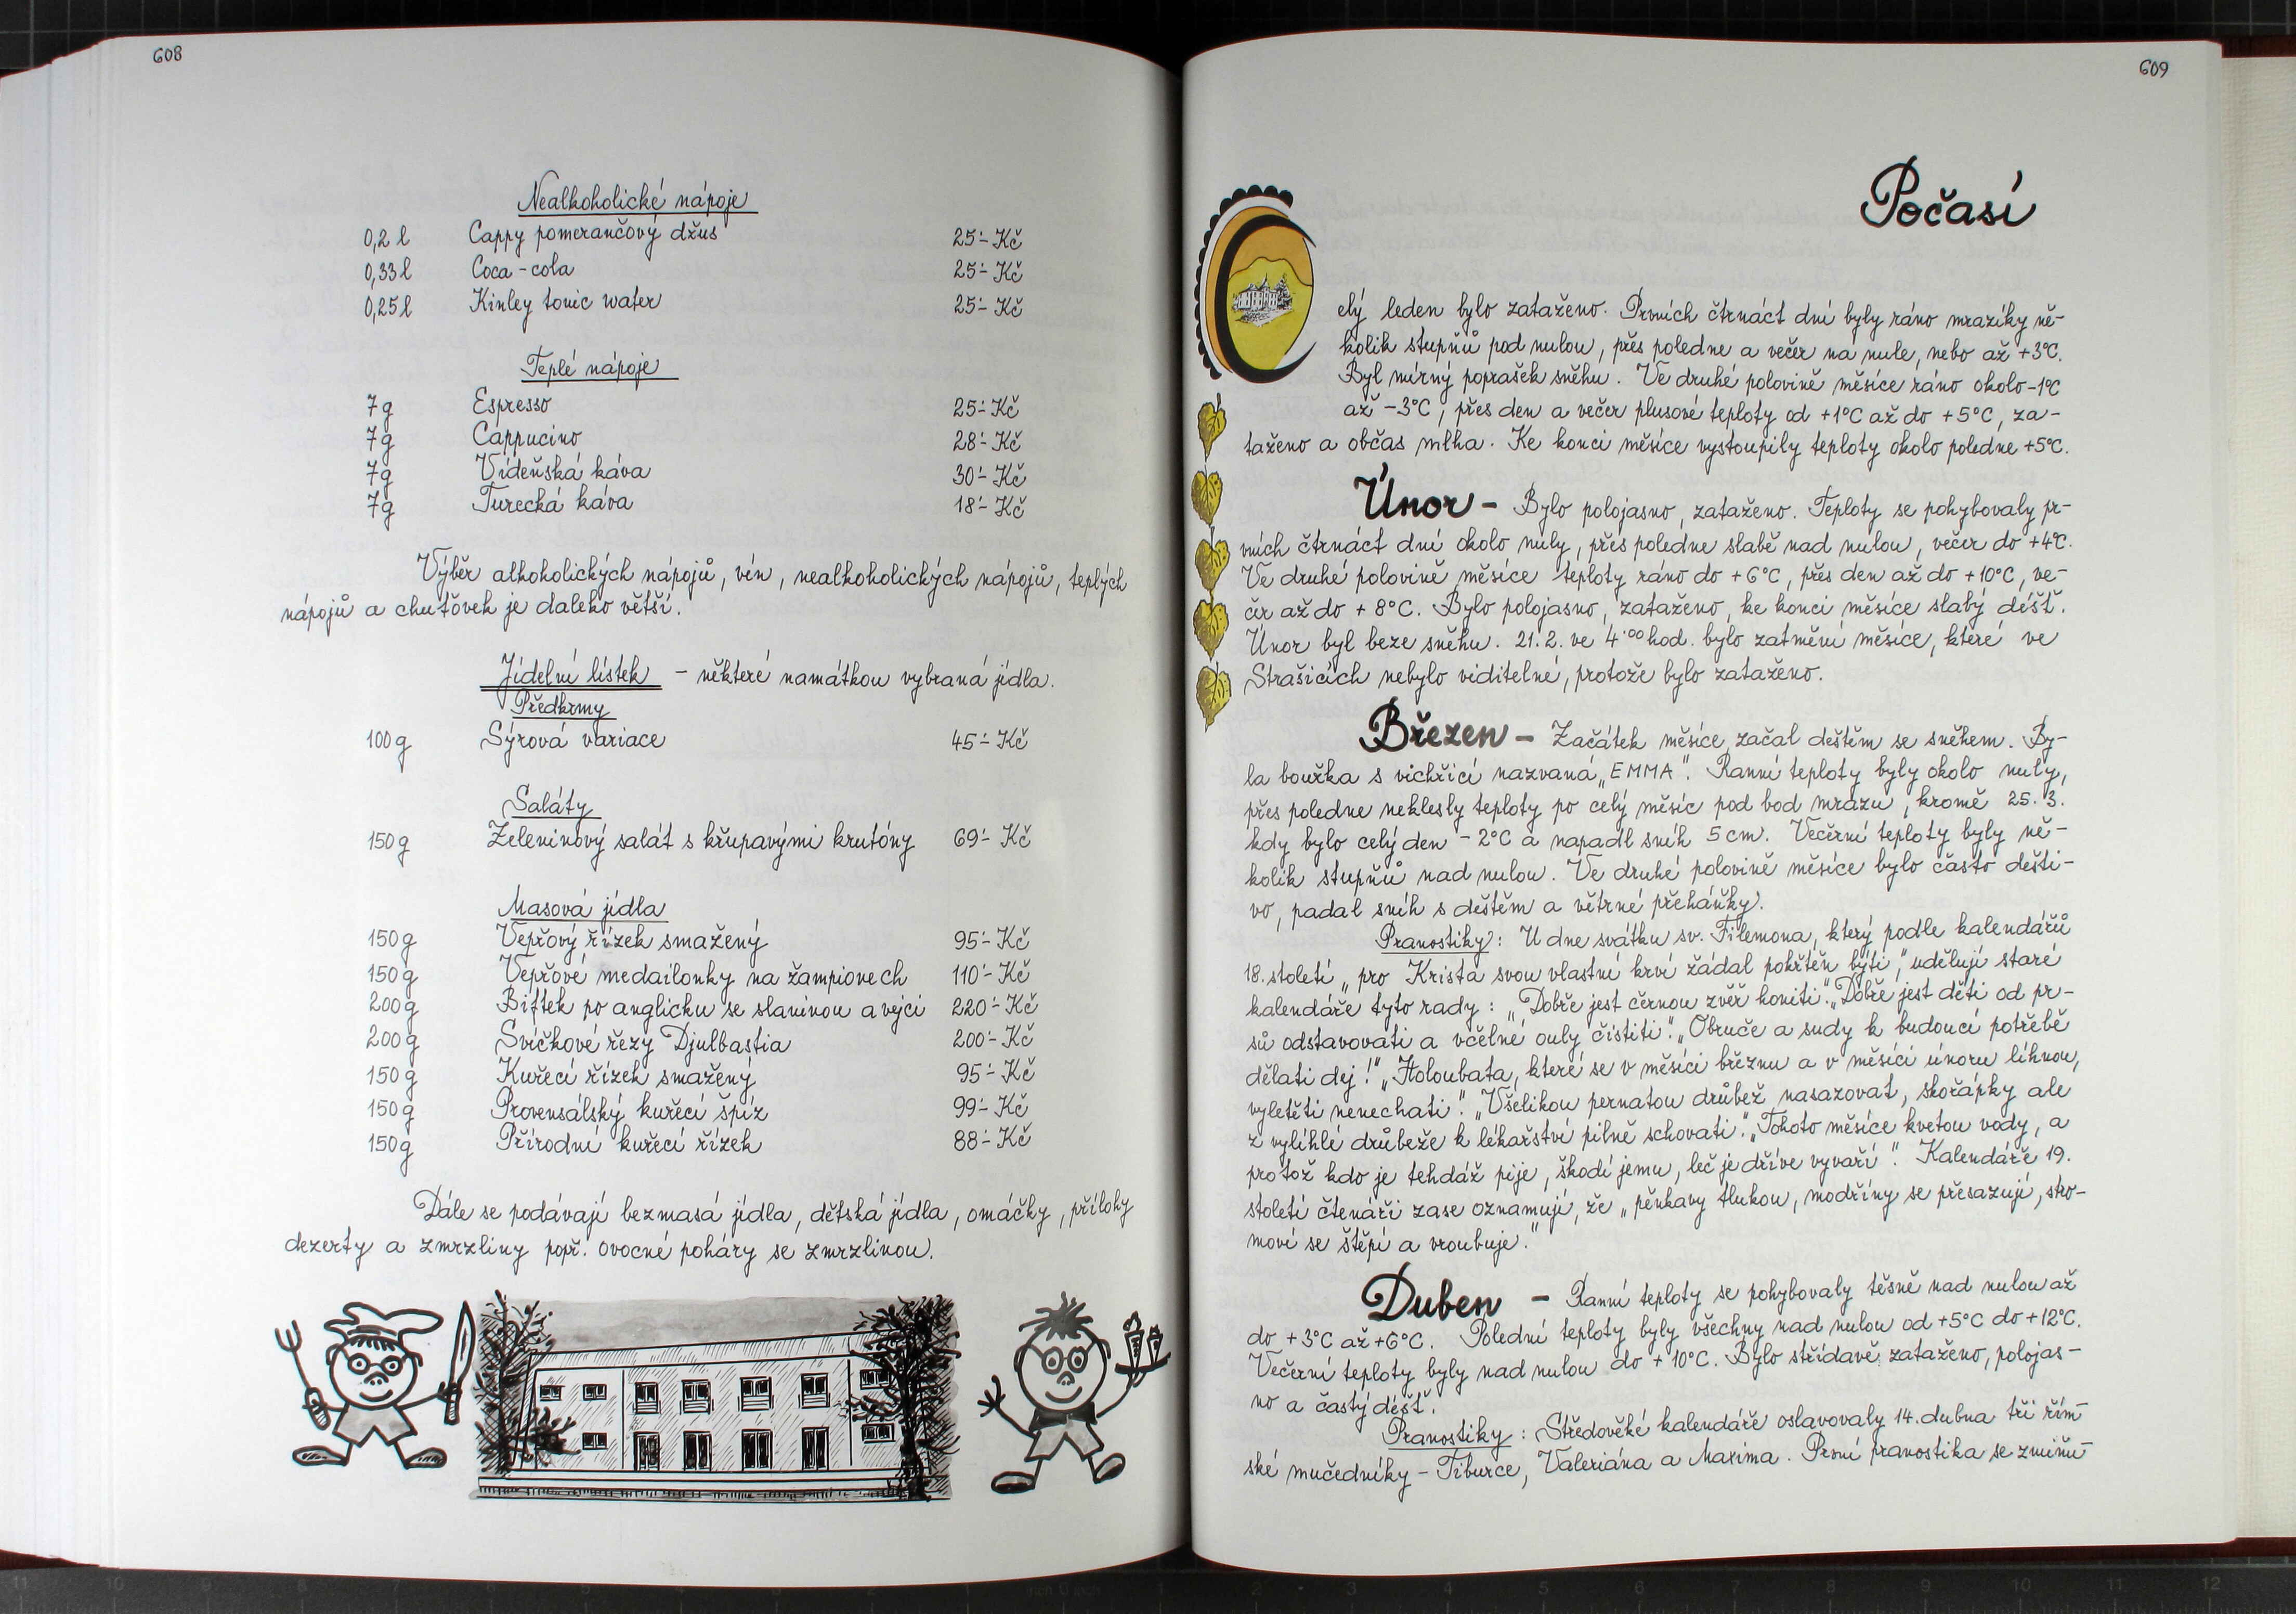 608
Nealkoholické nápoje
0,2 l Cappy pomerančový džus 25,- Kč
0,33 l Coca-cola 25,- Kč
0,25 l Kinley tonic water 25,- Kč
Teplé nápoje
7g Espresso 25,- Kč
7g Cappucino 28,- Kč
7g Vídeňská káva 30,- Kč
7g Turecká káva 18,- Kč
Výběr alkoholických nápojů, vín, nealkoholických nápojů, teplých
nápojů a chuťovek je daleko větší.
Jídelní lístek - některé namátkou vybraná jídla.
Předkrmy
100g Sýrová variace 45,- Kč
Saláty
150g Zeleninový salát s křupavými krutóny 69,- Kč
Masová jídla
150g Vepřový řízek smažený 95,- Kč
150g Vepřové medailonky na žampionech 110,- Kč
200g Biftek po anglicku se slaninou a vejci 220,- Kč
200g Svíčkové řezy Djulbastia 200,- Kč
150g Kuřecí řízek smažený 95,- Kč
150g Provensálský kuřecí špíz 99,- Kč
150g Přírodní kuřecí řízek 88,- Kč
Dále se podávají bezmasá jídla, dětská jídla, omáčky, přílohy
dezerty a zmrzliny popř. ovocné poháry se zmrzlinou.
609
Počasí
Celý leden bylo zataženo. Prvních čtrnáct dní byly ráno mrazíky ně-
kolik stupňů pod nulou, přes poledne a večer na nule, nebo až +3°C.
Byl mírný poprašek sněhu. Ve druhé polovině měsíce ráno okolo -1°C
až -3°C, přes den a večer plusové teploty od +1°C až do +5°C, za-
taženo a občas mlha. Ke konci měsíce vystoupily teploty okolo poledne +5°C.
Únor - Bylo polojasno, zataženo. Teploty se pohybovaly pr-
vních čtrnáct dní okolo nuly, přes poledne slabě nad nulou, večer do +4°C.
Ve druhé polovině měsíce teploty ráno do +6°C, přes den až do +10°C, ve-
čer až do +8°C. Bylo polojasno, zataženo, ke konci měsíce slabý déšť.
Únor byl beze sněhu. 21.2. ve 4.00 hod. bylo zatmění měsíce, které ve
Strašicích nebylo viditelné, protože bylo zataženo.
Březen - Začátek měsíce začal deštěm se sněhem. By-
la bouřka s vichřicí nazvaná „EMMA". Ranní teploty byly okolo nuly,
přes poledne neklesly teploty po celý měsíc pod bod mrazu, kromě 25.3.
kdy bylo celý den -2°C a napadl sníh 5 cm. Večerní teploty byly ně-
kolik stupňů nad nulou. Ve druhé polovině měsíce bylo často dešti-
vo, padal sníh s deštěm a větrné přeháňky.
Pranostiky: U dne svátku sv. Filemona, který podle kalendářů
18. století „pro Krista svou vlastní krví žádal pokřtěn býti," udělují staré
kalendáře tyto rady: „Dobře jest černou zvěř honiti". „Dobře jest děti od pr-
sů odstavovati a včelné ouly čistiti". „Obruče a sudy k budoucí potřebě
dělati dej!" „Holoubata, které se v měsíci březnu a v měsíci únoru líhnou,
vyletěti nenechati". „Všelikou pernatou drůbež nasazovat, skořápky ale
z vylíhlé drůbeže k lékařství pilně schovati". „Tohoto měsíce kvetou vody, a
protož kdo je tehdáž pije, škodí jemu, leč je dříve vyvaří". Kalendáře 19.
století čtenáři zase oznamují, že „pěnkavy tlukou, modříny se přesazují, stro-
moví se štěpí a vroubuje."
Duben - Ranní teploty se pohybovaly těsně nad nulou až
do +3°C až +6°C. Polední teploty byly všechny nad nulou od +5°C do +12°C.
Večerní teploty byly nad nulou do +10°C. Bylo střídavě zataženo, polojas-
no a častý déšť.
Pranostiky: Středověké kalendáře oslavovaly 14. dubna tři řím-
ské mučedníky - Tiburce, Valeriána a Maxima. První pranostika se zmiňu-